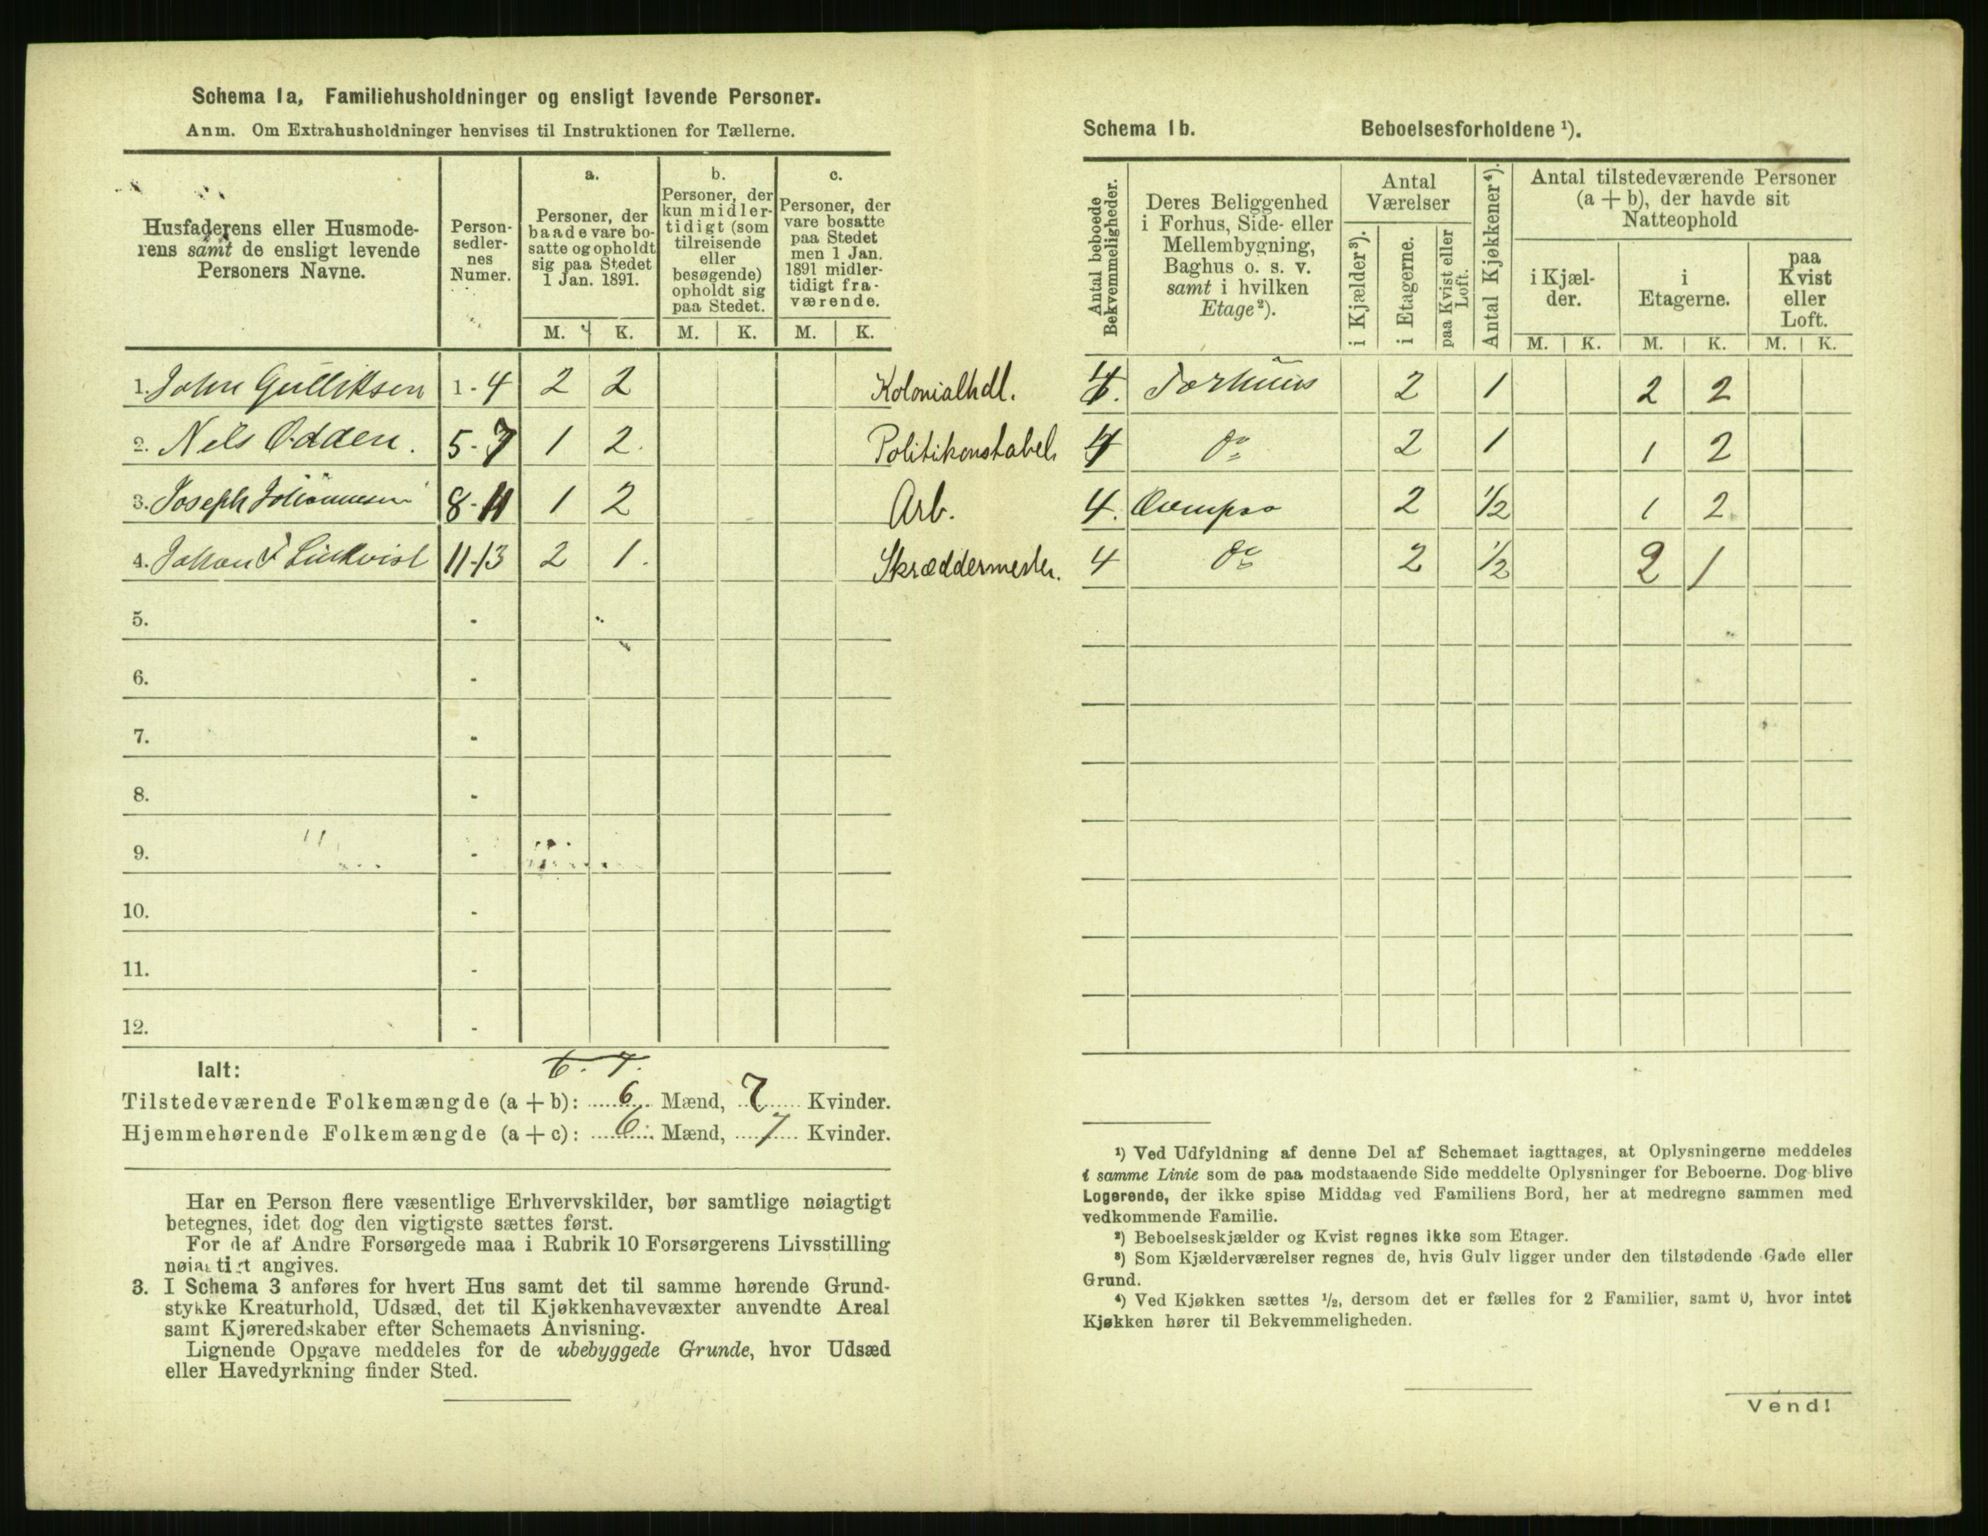 Schema 1a, Familiehusholdninger og ensligt levende Personer.
Anm. Om Extrahusholdninger henvises til Instruktionen for Tællerne.
Husfaderens eller Husmode-
rens samt de ensligt levende
Personers Navne.
Person-
sedler-
nes
Numer.
a.
Personer, der
baade vare bo-
satte og opholdt
sig paa Stedet
1 Jan. 1891.
b.
Personer, der
kun midler-
tidigt (som
tilreisende
eller
besøgende)
opholdt sig
paa Stedet.
c.
Personer, der
vare bosatte
paa Stedet
men 1 Jan.
1891 midler-
tidigt fra-
værende.
M. K. M. K. M. K.
1. John Gulliksen 1-4 2 2 Kolonialhdl.
2. Nels Odden. 5-7 1 2. Politikonstabel.
3. Joseph Johannesen 8-11 1 2 Arb.
4. Johan Lindkvist 11-13 2 1. Skræddermester.
5. -
6. -
7. -
8. -
9. -
10. -
11. -
12. -
Ialt: 6. 7.
Tilstedeværende Folkemængde (a + b): 6 Mænd, 7 Kvinder.
Hjemmehørende Folkemængde (a + c): 6 Mænd, 7 Kvinder.
Har en Person flere væsentlige Erhvervskilder, bør samtlige nøiagtigt
betegnes, idet dog den vigtigste sættes først.
For de af Andre Forsørgede maa i Rubrik 10 Forsørgerens Livsstilling
nøiagtigt angives.
3. I Schema 3 anføres for hvert Hus samt det til samme hørende Grund-
stykke Kreaturhold, Udsæd, det til Kjøkkenhavevæxter anvendte Areal
samt Kjøreredskaber efter Schemaets Anvisning.
Lignende Opgave meddeles for de ubebyggede Grunde, hvor Udsæd
eller Havedyrkning finder Sted.
Schema 1b. Beboelsesforholdene ¹).
Antal beboede
Bekvemmeligheder.
Deres Beliggenhed
i Forhus, Side- eller
Mellembygning,
Baghus o. s. v.
samt i hvilken
Etage²).
Antal
Værelser
i Kjælder³).
i Etagerne.
paa Kvist eller
Loft.
Antal Kjøkkener⁴).
Antal tilstedeværende Personer
(a + b), der havde sit
Natteophold
i Kjæl-
der.
i
Etagerne.
paa
Kvist
eller
Loft.
M. K. M. K. M. K.
4. Forhuus 2 1 2 2
4 do 2 1 1 2
4. 2 ½ 1 2
4 do 2 ½ 2 1
¹) Ved Udfyldning af denne Del af Schemaet iagttages, at Oplysningerne meddeles
i samme Linie som de paa modstaaende Side meddelte Oplysninger for Beboerne. Dog blive
Logerende, der ikke spise Middag ved Familiens Bord, her at medregne sammen med
vedkommende Familie.
²) Beboelseskjælder og Kvist regnes ikke som Etager.
³) Som Kjælderværelser regnes de, hvis Gulv ligger under den tilstødende Gade eller
Grund.
⁴) Ved Kjøkken sættes ½, dersom det er fælles for 2 Familier, samt 0, hvor intet
Kjøkken hører til Bekvemmeligheden.
Vend!